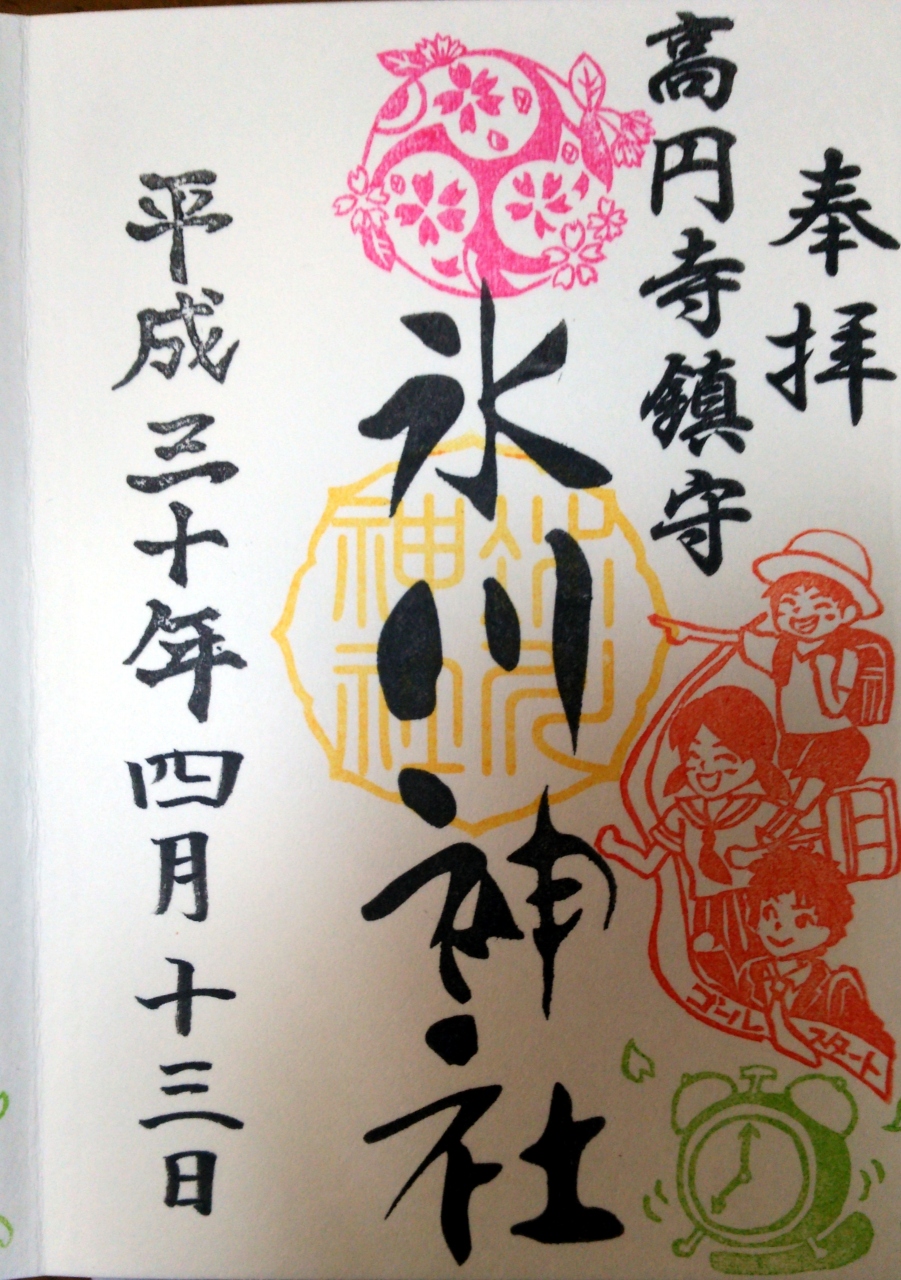 奉拝
高円寺鎮守
氷川神社
氷川
神社
平成三十年四月十三日
ゴール
スタート